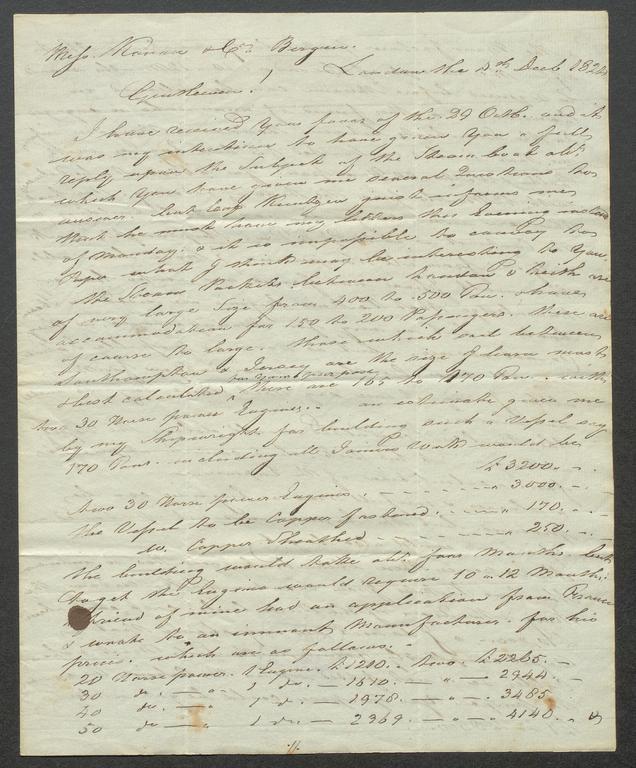 Mess. Konow & Co. Bergen.
London the 4th Decb 1824
Gentlemen!
I have received Your favor of the 29 Octb. and it
was my intention to have given You a full
reply upon the Subject of the Steam boat abt
which You have given me several Questions to
answer. but Capt just informs me
that he must have my letters this Evening instead
of Monday. & it is impossible to convey to
Paper what I think may be interesting to You.
the Steam Packets between London & Leith are
of very large Size from 400 to 500 Tons. & have
accommodation for 150 to 200 Passengers. these are
of course to large. those which sail between
Southampton & Jersey are the size I learn most
& best calculated for Your purpose these are 165 to 170 Tons. with
two 30 Horse power Engines. an estimate given me
by my Shipwright for building such a Vessel say
170 Tons. including all Joiners Work would be
£ 3200. -
two 30 Horse power Engines - - - - " 3000. -
the Vessel to be Copper fastened - - - - " 170. -
do. Copper Sheathed - - - - " 250. -
the building would take abt four Months. but
to get the Engines would require 10 a 12 Months.
A friend of mine had an application from France
& wrote to an eminent Manufacturer for his
price. which are as follows. -
20 Horse power. 1 Engine £ 1200. - two. £ 2265. -
30 do. — " 1 do. — 1610. — " — 2944 -
40 do. — " 1 do. — 1978. — " — 3485. -
50 do — " 1 do. — 2369. — " — 4140. -